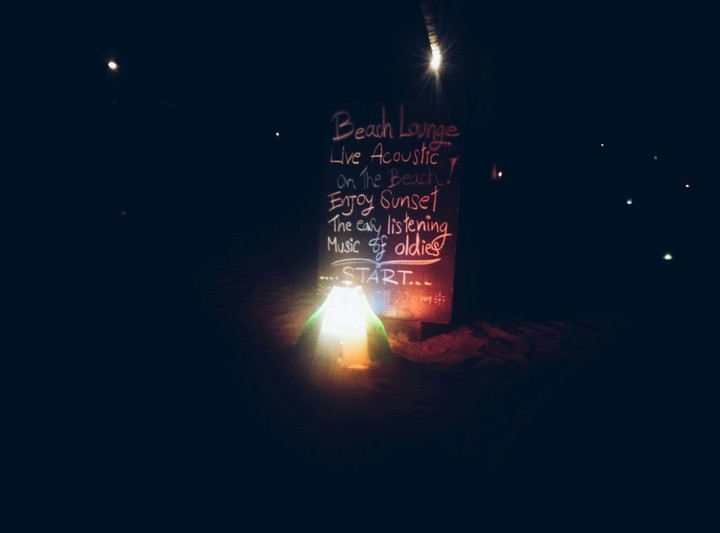 Beach Lounge
Live Acoustic
On The Beach!
Enjoy Sunset
The easy listening
Music & oldies
....START...